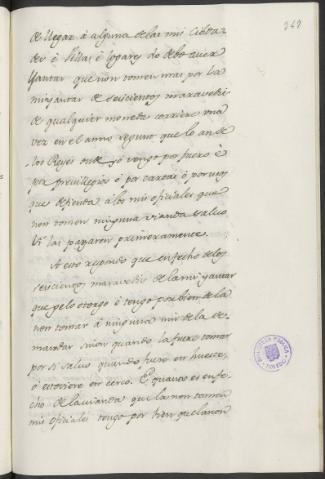 367
de llegar à alguna de las mis Cibdaz
des ò Villas ò logares do debo aver
Yantar que non tomen mas por la
mi yantar de seiscientos maravedis
de qualquier moneda corriere una
vez en el anno segunt que lo an de
los Reyes onde yo vengo por fuero è
por previllegios è por cartas è por uso
que defienda à los mis oficiales que
non tomen ninguna vianda salvo
si las pagaren primeramente.
A esto respondo que en fecho de los
seiscientos maravedis de la mi yantar
que gelo otorgo è tengo por bien de la
non tomar à ninguna nin de la de-
mandar sinon quando la fuere tomar
por mi salvo quando fuere en hueste,
ò estoviere en cerco. E quanto es en fe-
cho de la vianda que la non tomen
mis oficiales tengo por bien que la non
BIBLIOTECA PUBLICA
TOLEDO